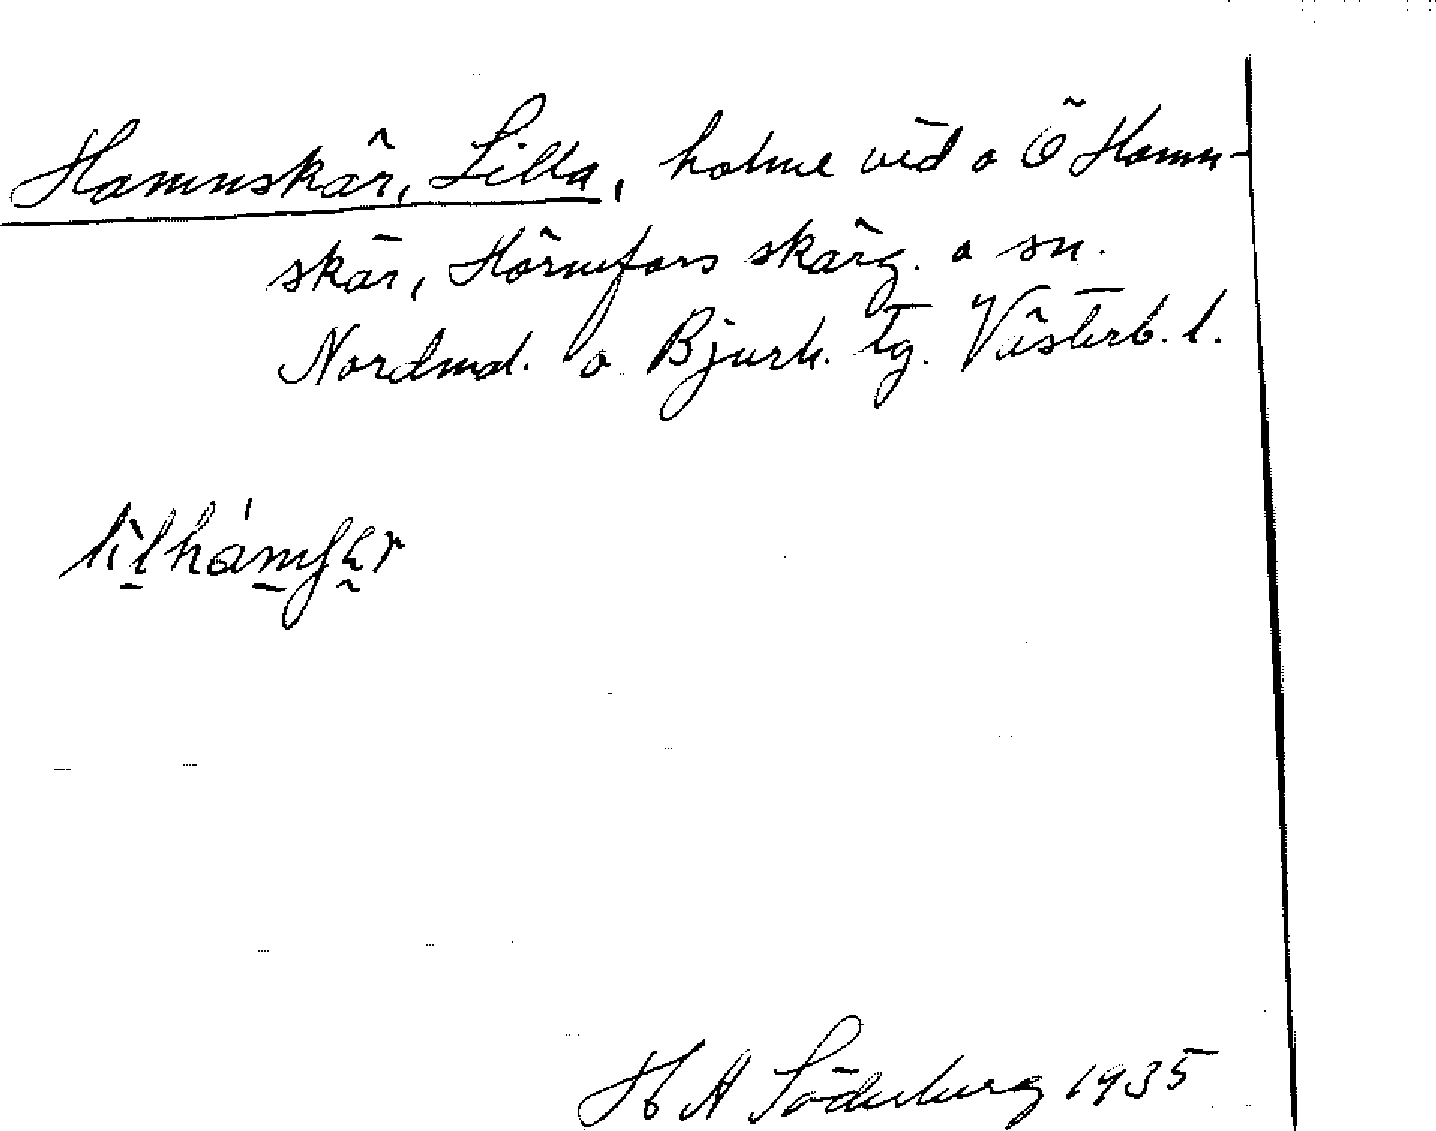 Hamnskär, Lilla, holme vid o Ö Hamn-
skär, Hörnefors skärg. o sn.
Nordmal. o Bjurh. tg. Västerb. l.
H A Söderberg 1935